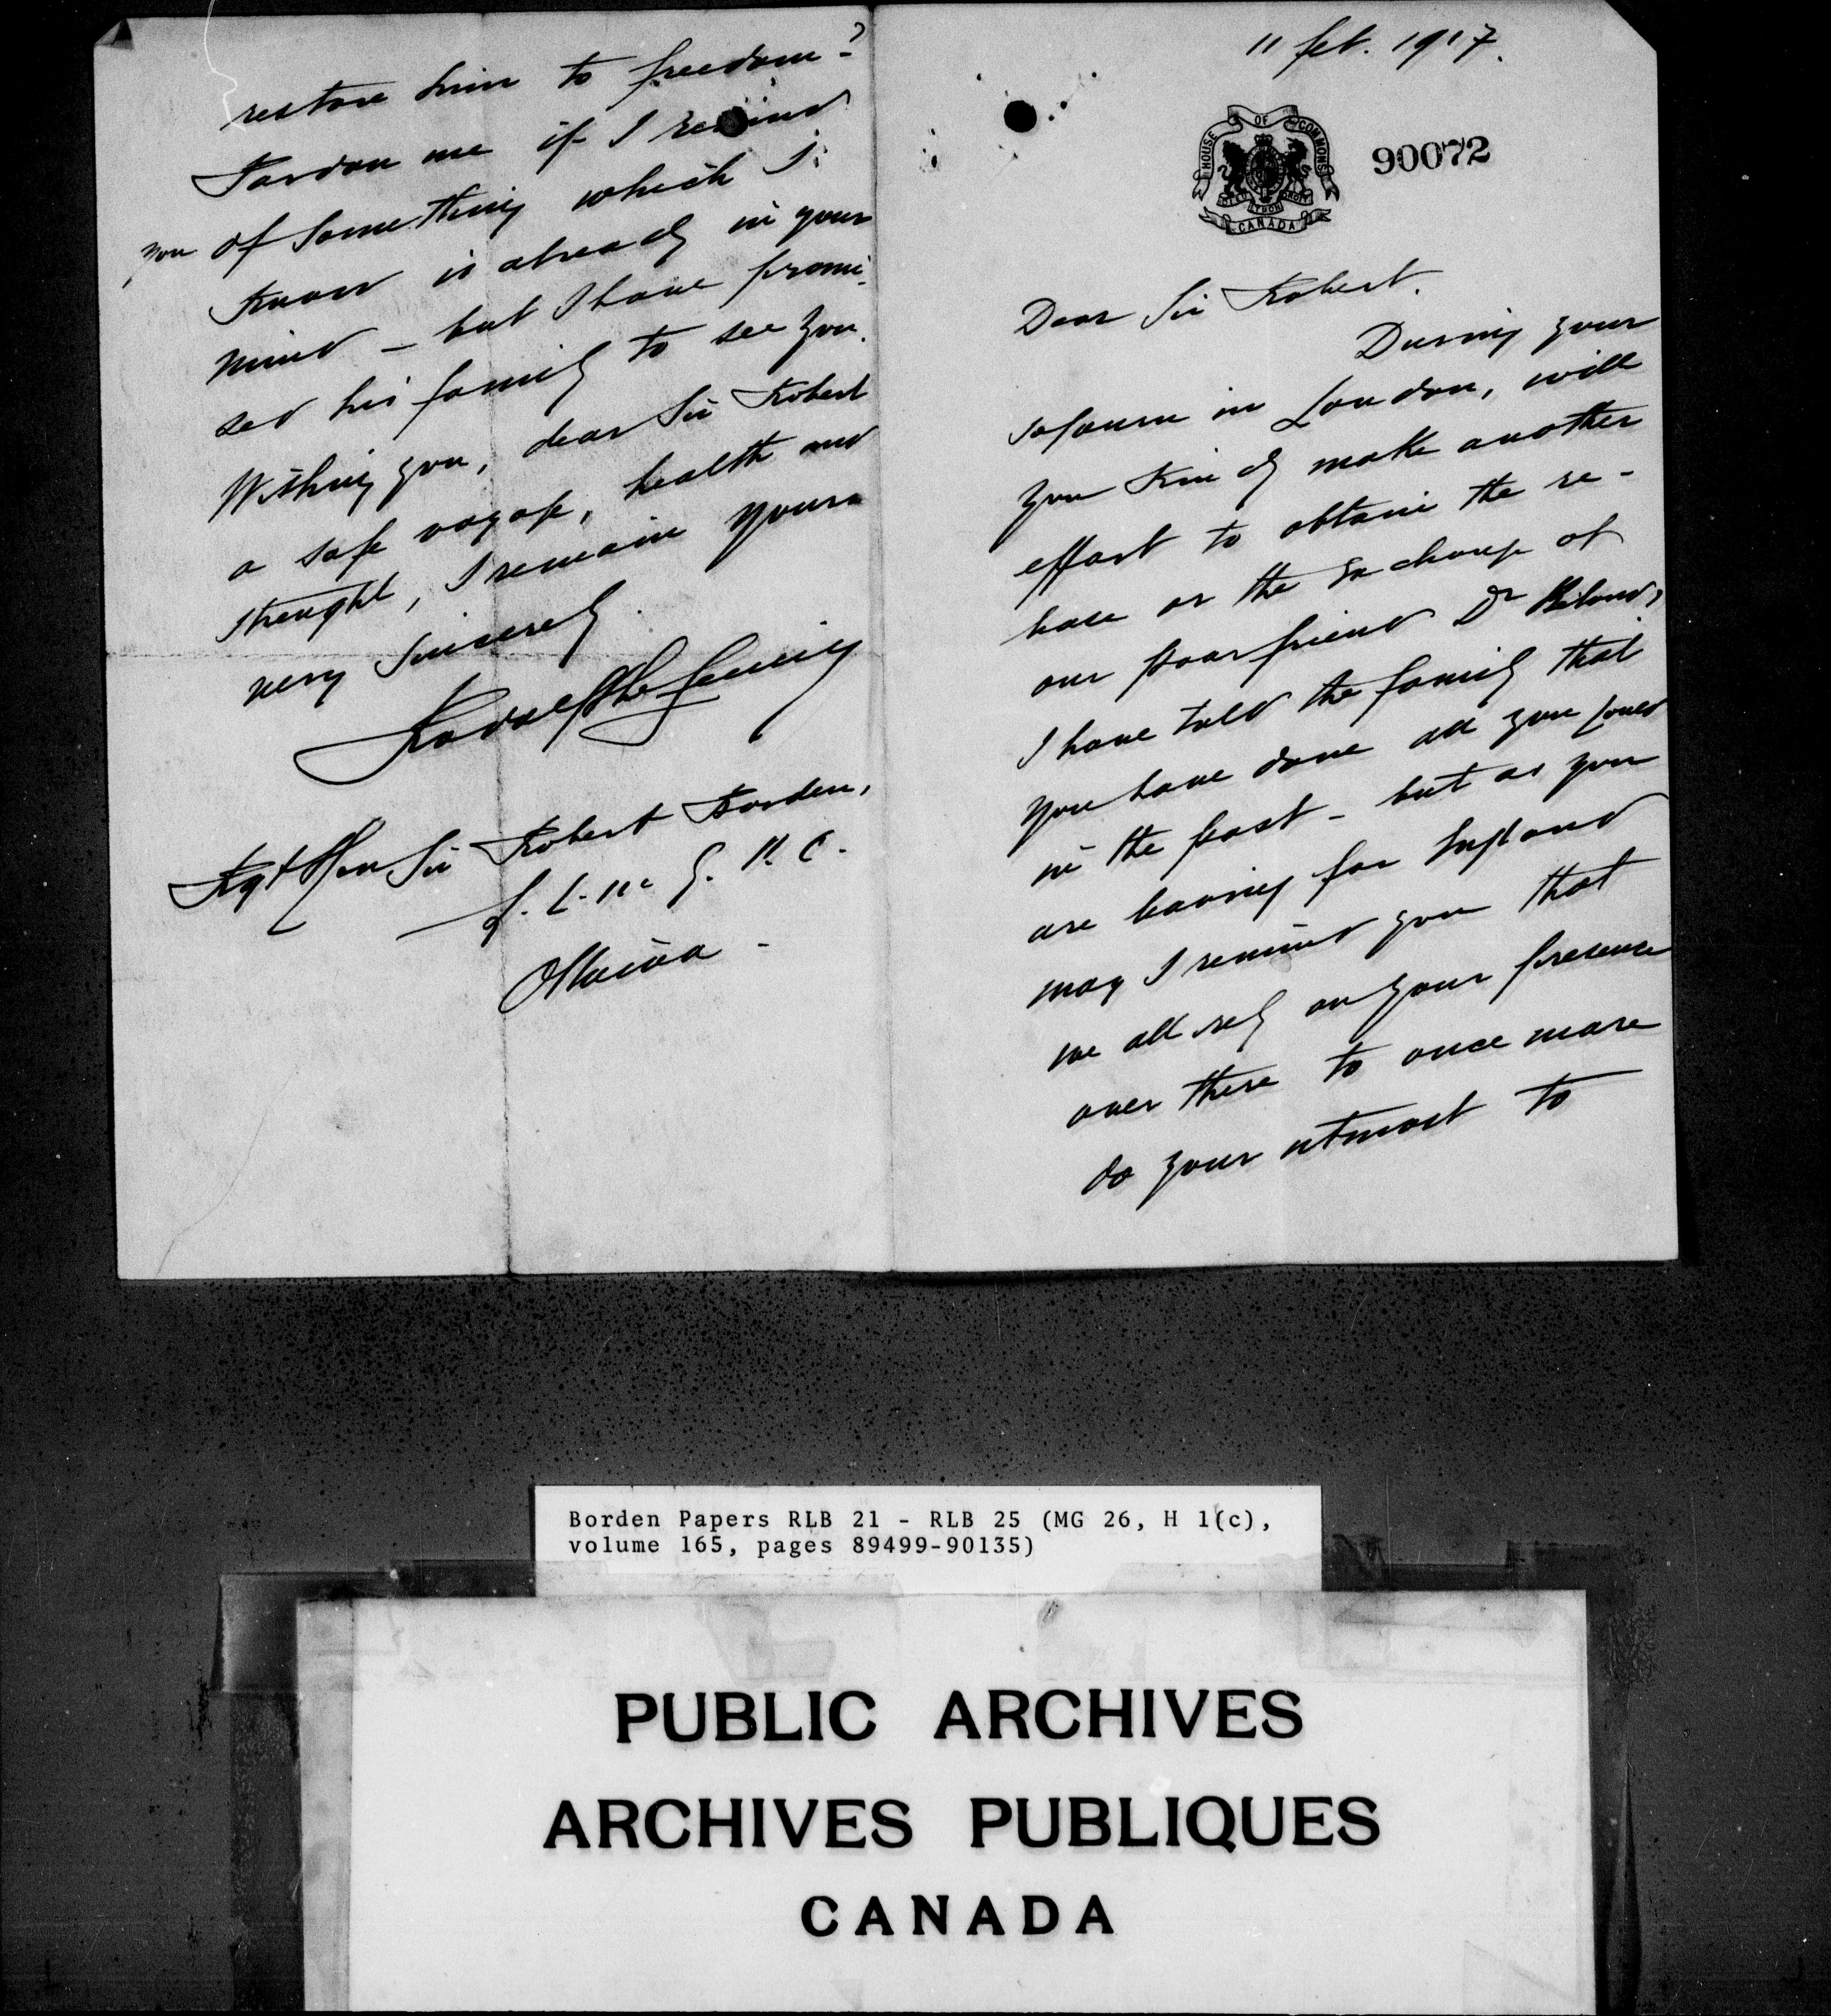 11 feb. 1917.
HOUSE OF COMMONS
CANADA
90072
Dear Sir Robert.
During your
sojourn in London, will
you kindly make another
effort to obtain the re-
lease or the exchange of
our poor friend Dr Béland,
I have told the family that
you have done all you could
in the past - but as you
are leaving for England
may I remind you that
we all rely on your presence
over there to once more
do your utmost to
restore him to freedom?
Pardon me if I remind
you of something which I
know is already in your
mind - but I have promi-
sed his family to see you.
Wishing you, dear Sir Robert
a safe voyage, health and
strenght, I remain yours
very sincerely.
Rodolphe Lemieux
Rgt Hon Sir Robert Borden,
Ottawa -
Borden Papers RLB 21 - RLB 25 (MG 26, H 1(c),
volume 165, pages 89499-90135)
PUBLIC ARCHIVES
ARCHIVES PUBLIQUES
CANADA